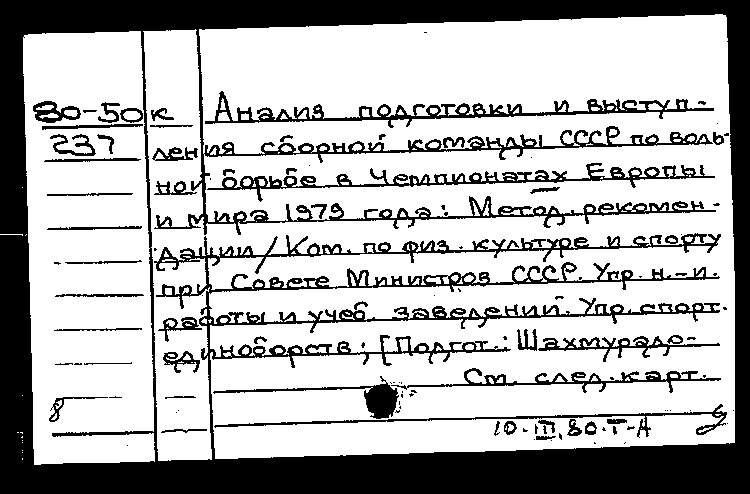 80-50 к Анализ подготовки и выступ-
237 ления сборной команды СССР по воль-
ной борьбе в Чемпионатах Европы
и мира 1979 года: Метод. рекомен-
дации / Ком. по физ. культуре и спорту
при Совете Министров СССР. Упр. н.-и.
работы и учеб. заведений. Упр. спорт.
единоборств; [Подгот.: Шахмурадо-
См. след. карт.
8
10.III.80.Т-А